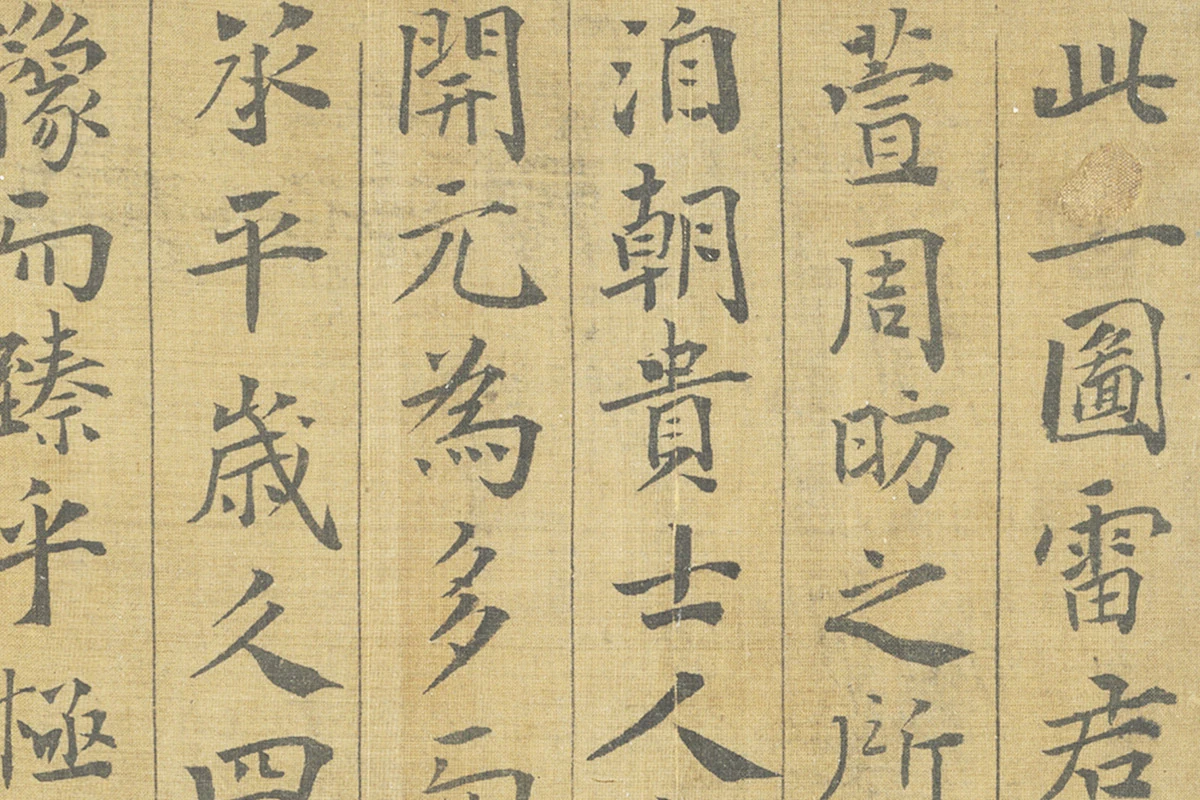 此一圖雷君
萱周昉之所
洎朝貴士人
開元為多而
承平歲久四
豫而臻乎極